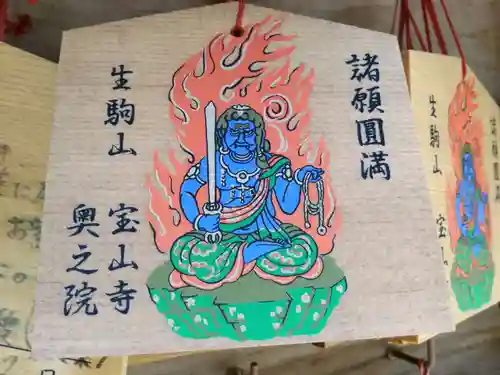 諸願圓満
生駒山
宝山寺
奥之院
生駒山
宝